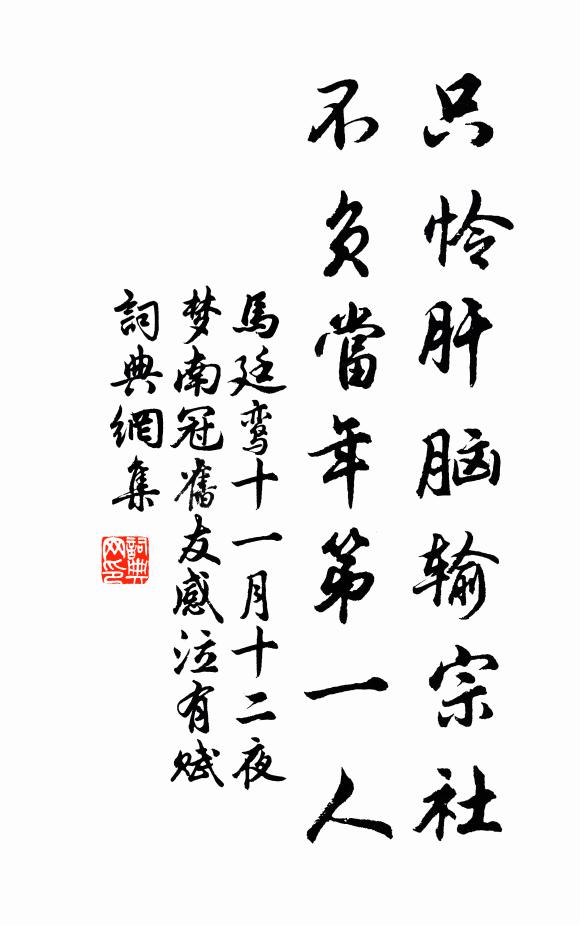 只怜肝脑输宗社
不负當年第一人
馬廷鸾十一月十二夜
梦南冠舊友感泣有赋
詞典網集
詞典网印